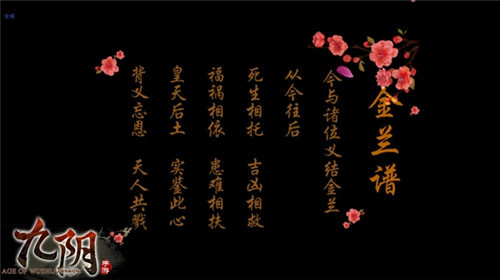 金兰谱
今与诸位义结金兰
从今往后
死生相托 吉凶相救
福祸相依 患难相扶
皇天后土 实鉴此心
背义忘恩 天人共戮
九阴
手游
AGE OF WUSHU